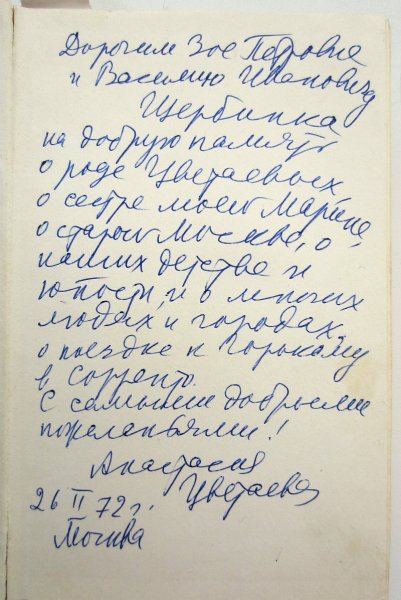 Дорогим Зое Петровне
и Василию Ивановичу
Щербинка
на добрую память
о роде Цветаевых
о сестре моей Марине,
о старой Москве, о
наших детстве и
юности, и о многих
людях и городах,
о поездке к Горькому
в Сорренто.
С самыми добрыми
пожеланьями!
Анастасия
Цветаева
26 II 72 г.
Москва